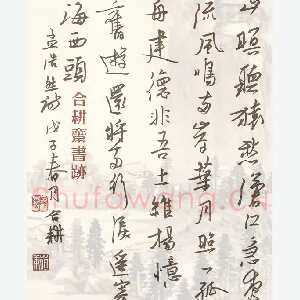 山暝聽猿愁滄江急夜
流風鳴兩岸葉月照一孤
舟建德非吾土維揚憶
舊遊還將兩行淚遙寄
海西頭
孟浩然詩戊子春月合耕
合耕齋書跡